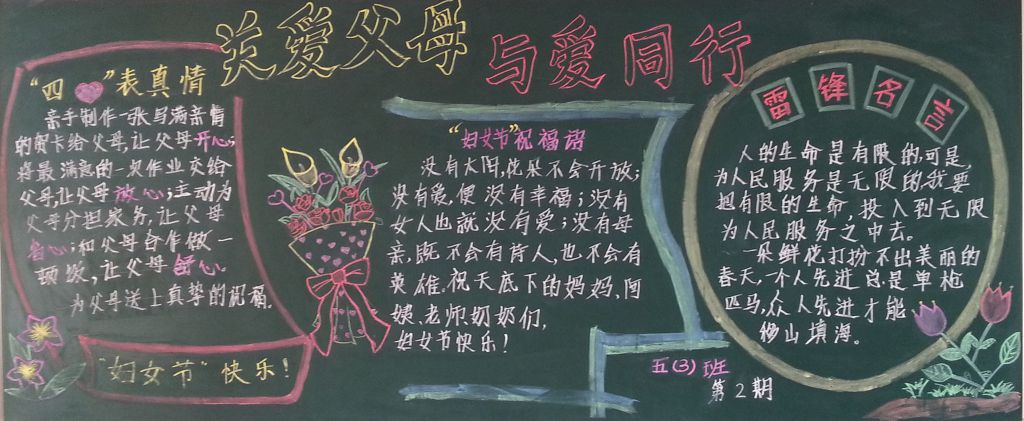 关爱父母
与爱同行
“四心”表真情
亲手制作一张写满亲情
的贺卡给父母,让父母开心;
将最满意的一次作业交给
父母,让父母放心;主动为
父母分担家务,让父母
省心;和父母合作做一
顿饭,让父母舒心。
为父母送上真挚的祝福。
“妇女节”快乐!
“妇女节”祝福语
没有太阳,花朵不会开放;
没有爱,便没有幸福;没有
女人也就没有爱;没有母
亲,既不会有诗人,也不会有
英雄。祝天底下的妈妈,阿
姨、老师奶奶们,
妇女节快乐!
五(3)班
第2期
雷锋名言
人的生命是有限的,可是,
为人民服务是无限的,我要
把有限的生命,投入到无限
为人民服务之中去。
一朵鲜花打扮不出美丽的
春天,一个人先进总是单枪
匹马,众人先进才能
移山填海。